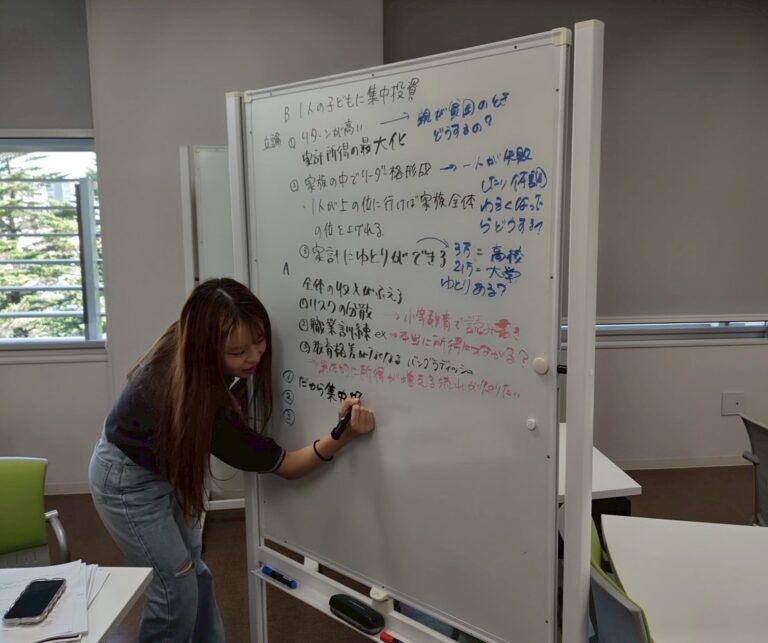 B 1人の子どもに集中投資
立論 ① リターンが高い → 親が貧困のときどうするの?
家計所得の最大化
② 家族の中でリーダー格形成 → 一人が失敗したり体調わるくなったらどうする?
・1人が上の位に行けば家族全体の位を上げれる
③ 家計にゆとりができる
3万 = 高校
21万 = 大学
ゆとりある?
A
全体の収入がふえる
リスクの分散 → 小等教育で読み書き
職業訓練 ex → 本当に所得につながる?
教育格差がなくなる バングラディッシュ
→ 具体的に所得が増える流れが知りたい
① だから集中が
②
③